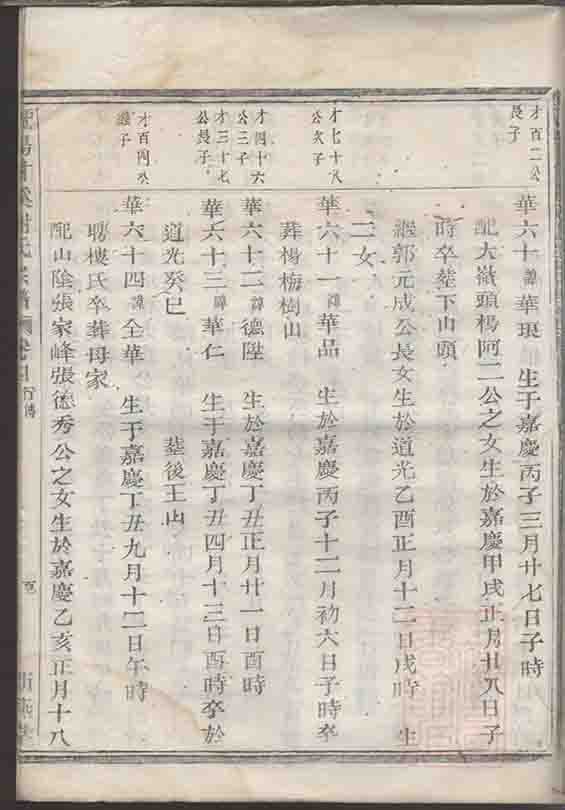 才百二公
長子
華六十諱華琅 生于嘉慶丙子三月廿七日子時
配大嶺頭楊阿二公之女生於嘉慶甲戌正月廿八日子
時卒塟下山頭
繼郭元成公長女生於道光乙酉正月十二日戌時 生
二女
才七十八
公次子
華六十一諱華品 生於嘉慶丙子十二月初六日子時卒
葬楊梅樹山
才四十六
公三子
華六十二諱德陞 生於嘉慶丁丑正月廿一日酉時
才三十七
公長子
華六十三諱華仁 生于嘉慶丁丑四月十三日酉時卒於
道光癸巳 塟後王山
才百四公
子
華六十四諱全華 生于嘉慶丁丑九月十二日午時
聘樓氏卒葬母家
配山陰張家峰張德秀公之女生於嘉慶乙亥正月十八
氏宗譜
行傳